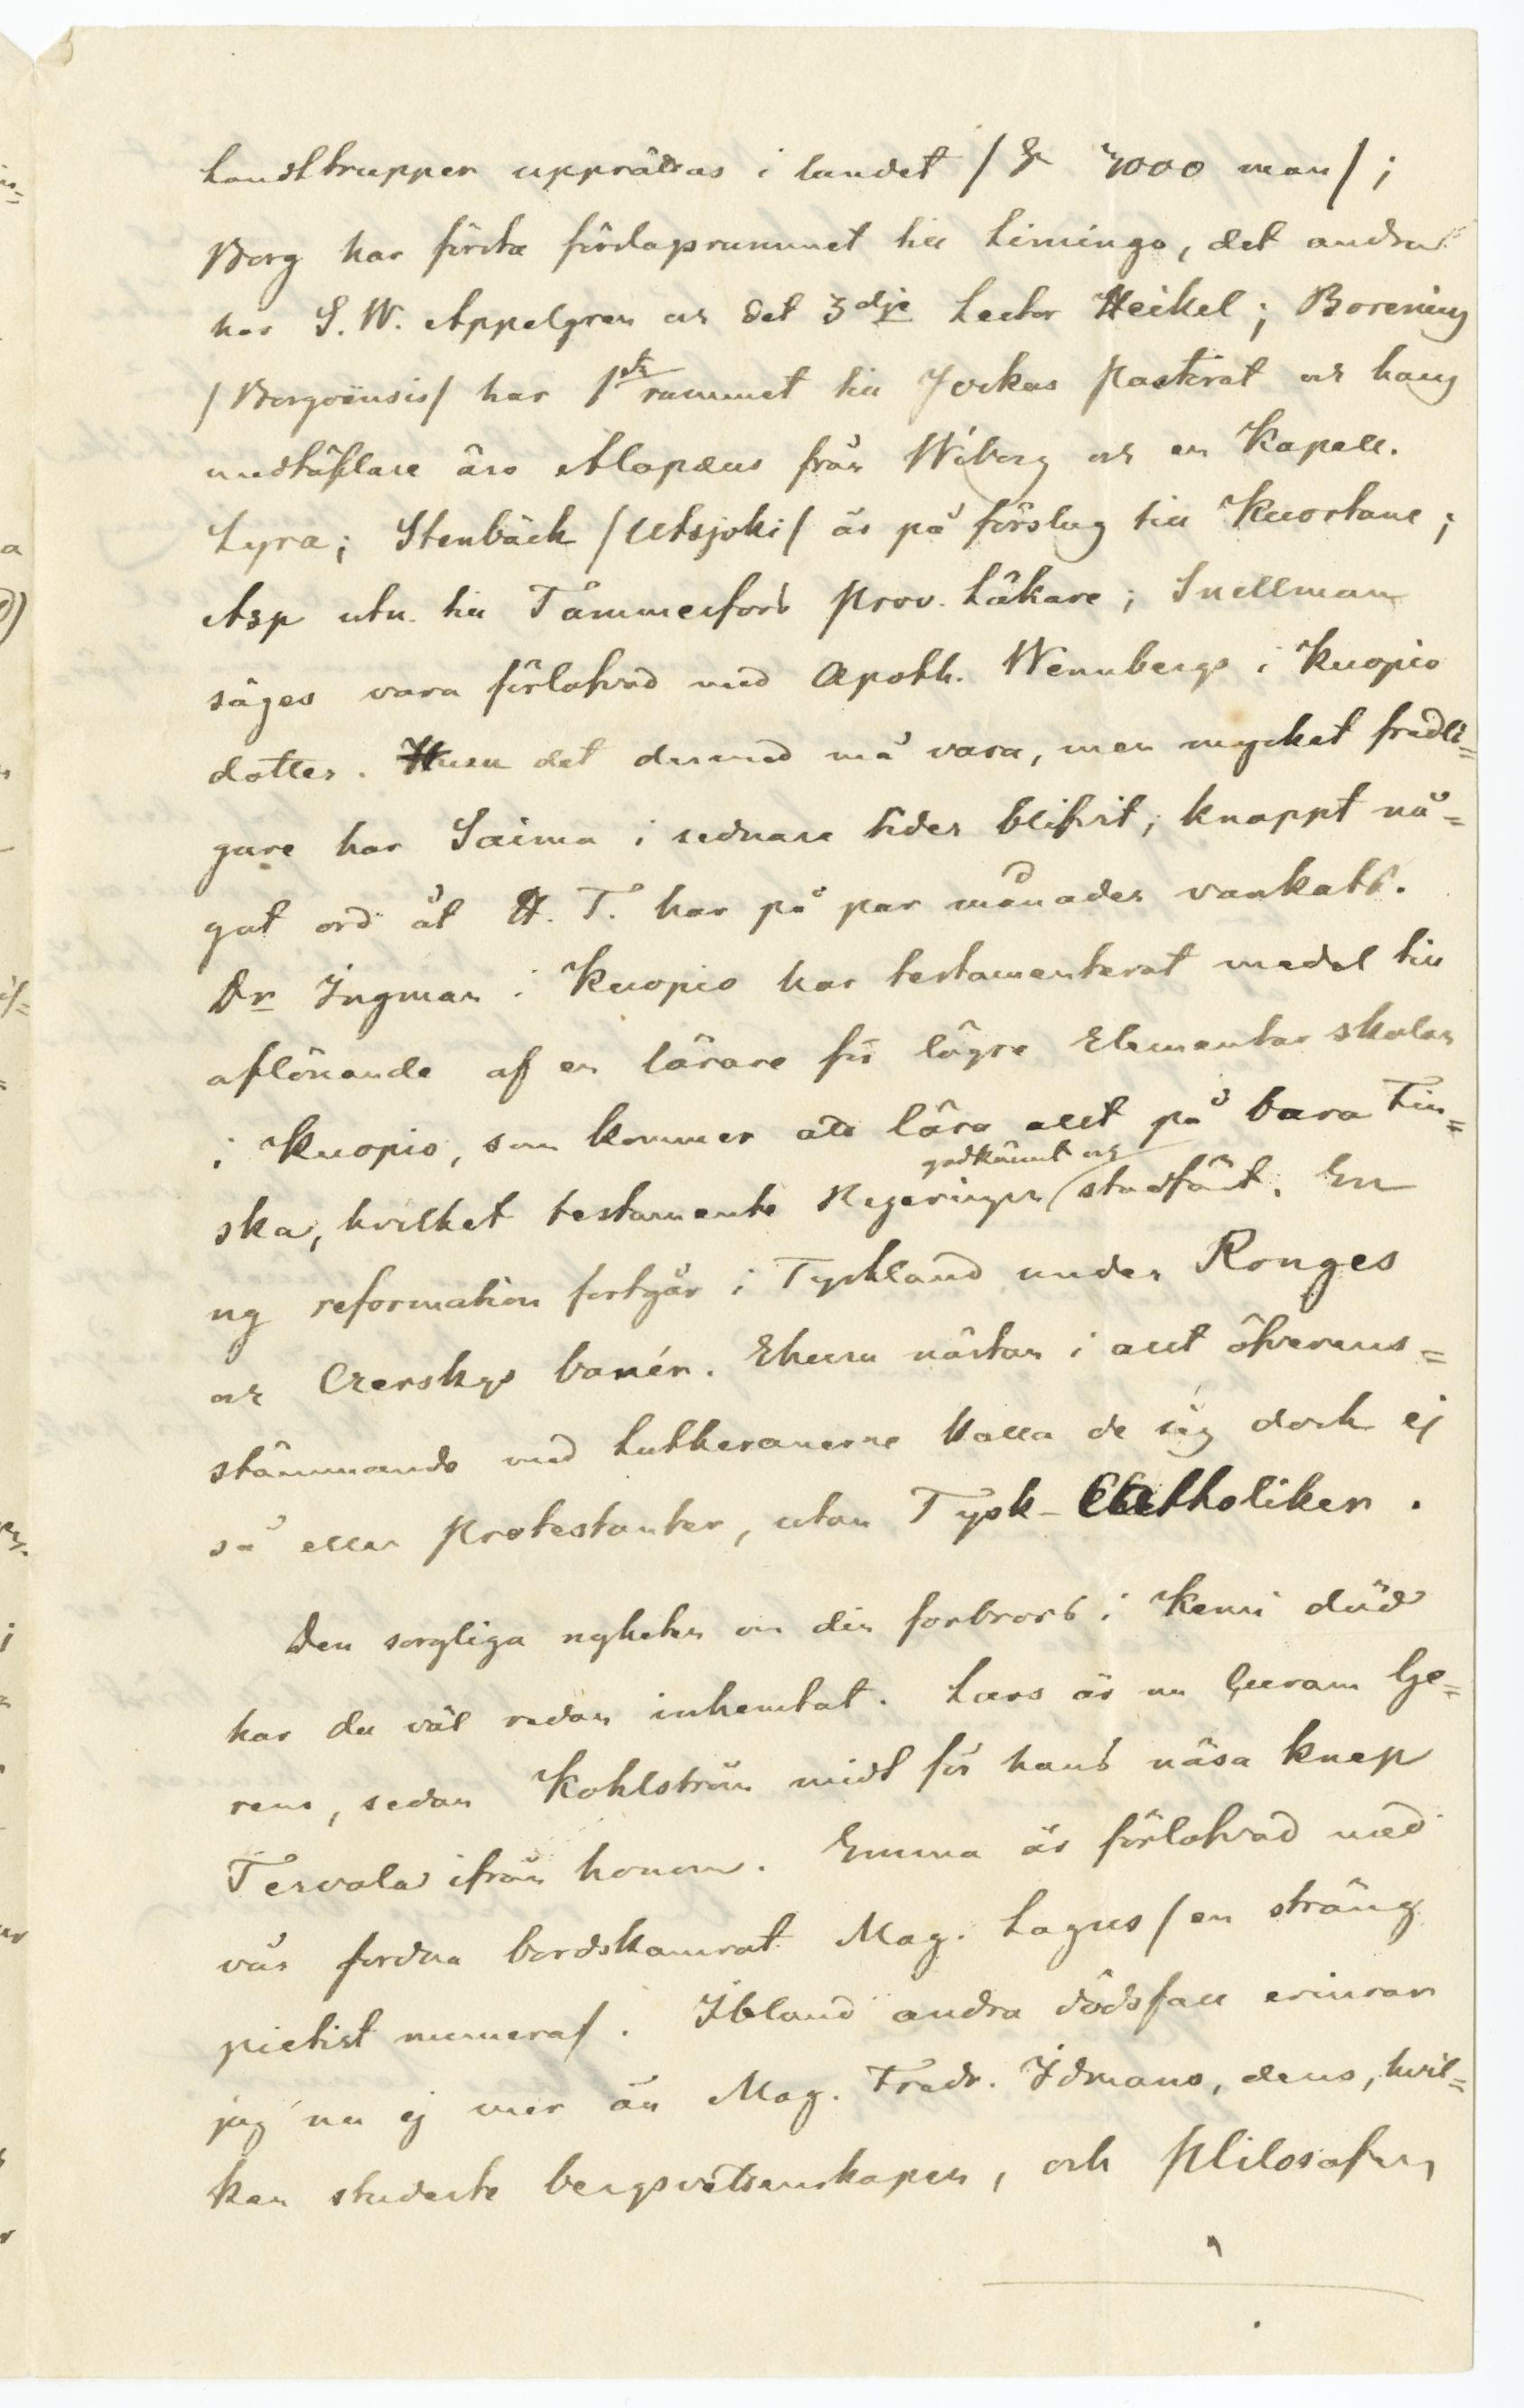 landttrupper upprättas i landet / 7000 man/;
Borg har första förslagsrummet till Limingo, det andra
har S. W. Appelgren och det 3dje Lector Heikel; Borenius
/Borgoënsis/ har 1sta rummet till Jockas Pastorat och hans
medtäflare äro Alopæus från Wiborg och en Kapell.
Lyra; Stenbäck /Utsjoki/ är på förslag till Kuortane;
Asp utn. till Tammerfors Prov. Läkare; Snellman
säges vara förlofvad med Apoth. Wennbergs i Kuopio
dotter. Huru det dermed må vara, men mycket fredli=
gare har Saima i sednare tider blifvit; knappt nå=
got ord åt H. T. har på par månader vankats.
Dr Ingman i Kuopio har testamenterat medel till
aflönande af en lärare för lägre Elementar skolan
i Kuopio, som kommer att lära allt på bara Fin=
ska, hvilket testamente Regeringen godkännt och stadfäst. En
ny reformation fortgår i Tyskland under Ronges
och Czerskys banér. Ehuru nästan i allt öfverens=
stämmande med Lutheranerne kalla de sig dock ej
så eller Protestanter, utan Tysk-Catholiker.
Den sorgliga nyheten om din farbrors i Kemi död
har du väl redan inhemtat. Lars är nu Curam Ge=
rens, sedan Kohlström midt för hans näsa knep
Tervola ifrån honom. Emma är förlofvad med
vår fordna bordskamrat Mag. Lagus /en sträng
pietist numera/. Ibland andra dödsfall erinrar
jag nu ej mer än Mag. Fredr. Idmans, dens, hvil=
ken studerte bergsvetenskapen, och Philosofen